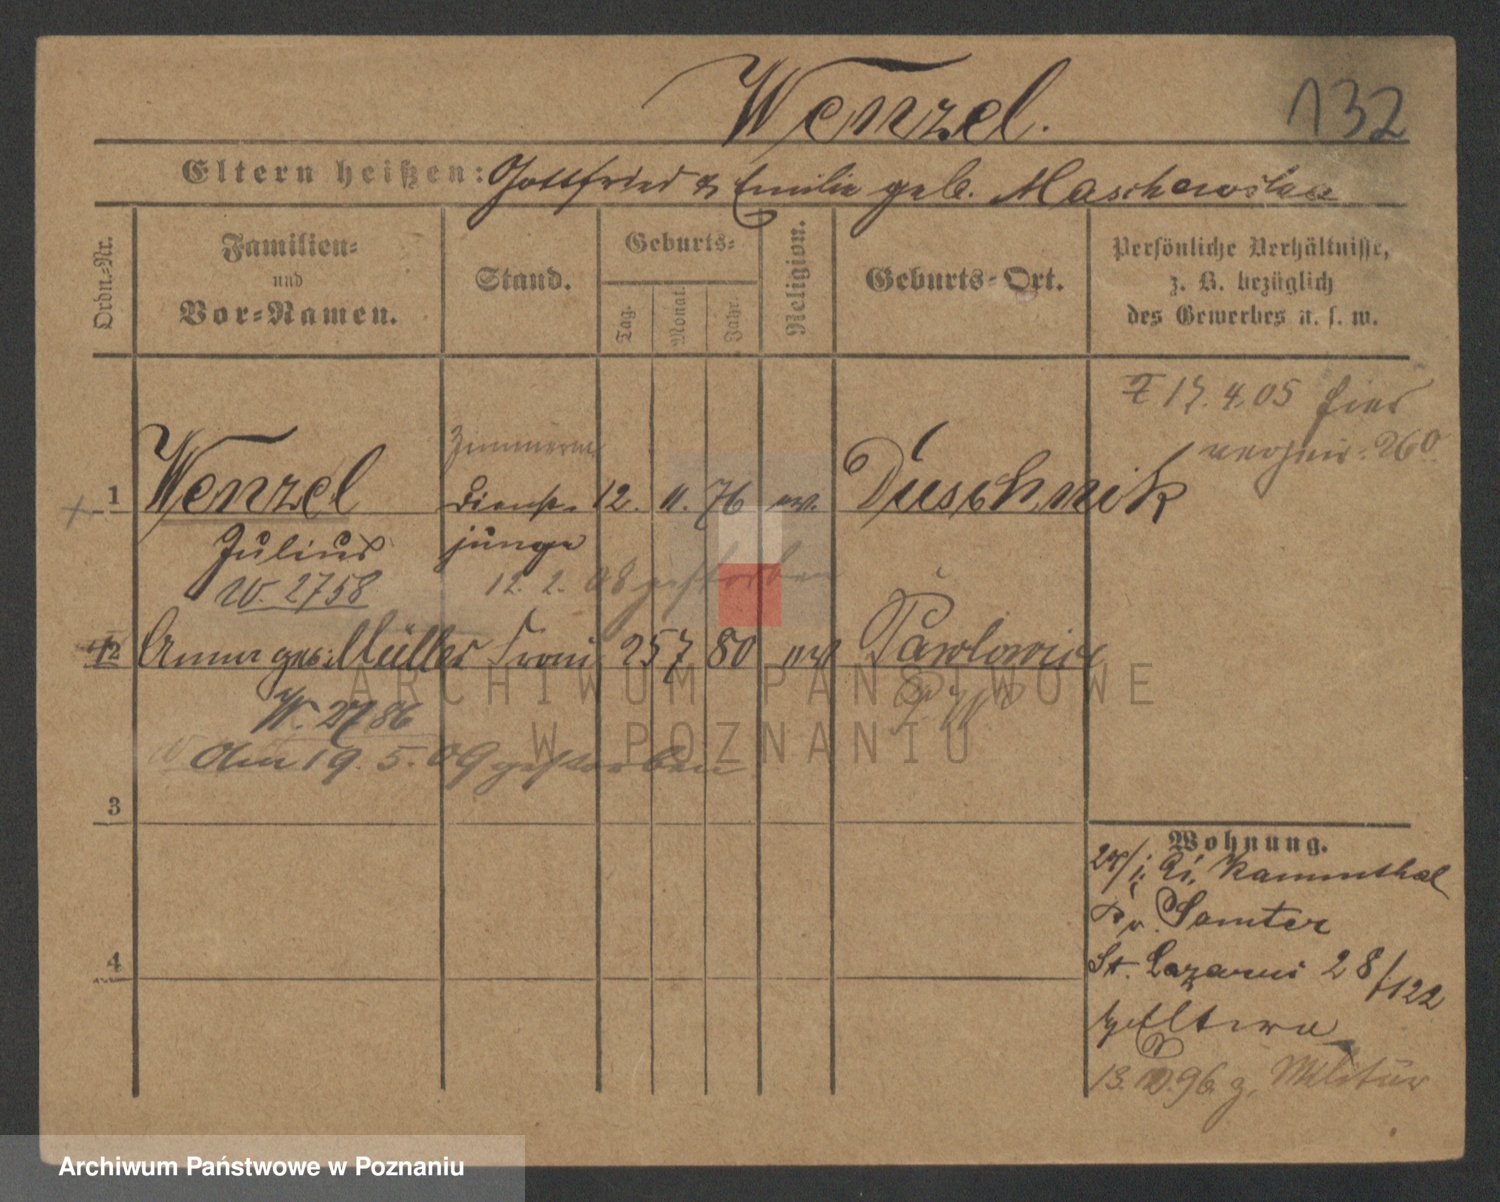 Wenzel.
132
Eltern heißen: Gottfried & Emilie geb. Maschewska
Ordn.-Nr.
Familien-
und
Vor-Namen.
Stand.
Geburts-
Tag.
Monat.
Jahr.
Religion.
Geburts-Ort.
Persönliche Verhältnisse,
z. B. bezüglich
des Gewerbes u. s. w.
17. 4. 05 hier
260
Zimmerm
1 Wenzel Dienst- 12. 11. 76 ev. Duschnik
Julius junge
W. 2758 12. 2. 08 gestorben
2 Anna geb. Müller Frau 25 7 80 ev Pawlowice
W. 2786
den 19. 5. 09 gestorben
3
4
Wohnung.
Kammthal
Samter
St. Lazarus 28/122
b/Eltern
13. 96. z. Militär
ARCHIWUM PAŃSTWOWE
W POZNANIU
Archiwum Państwowe w Poznaniu